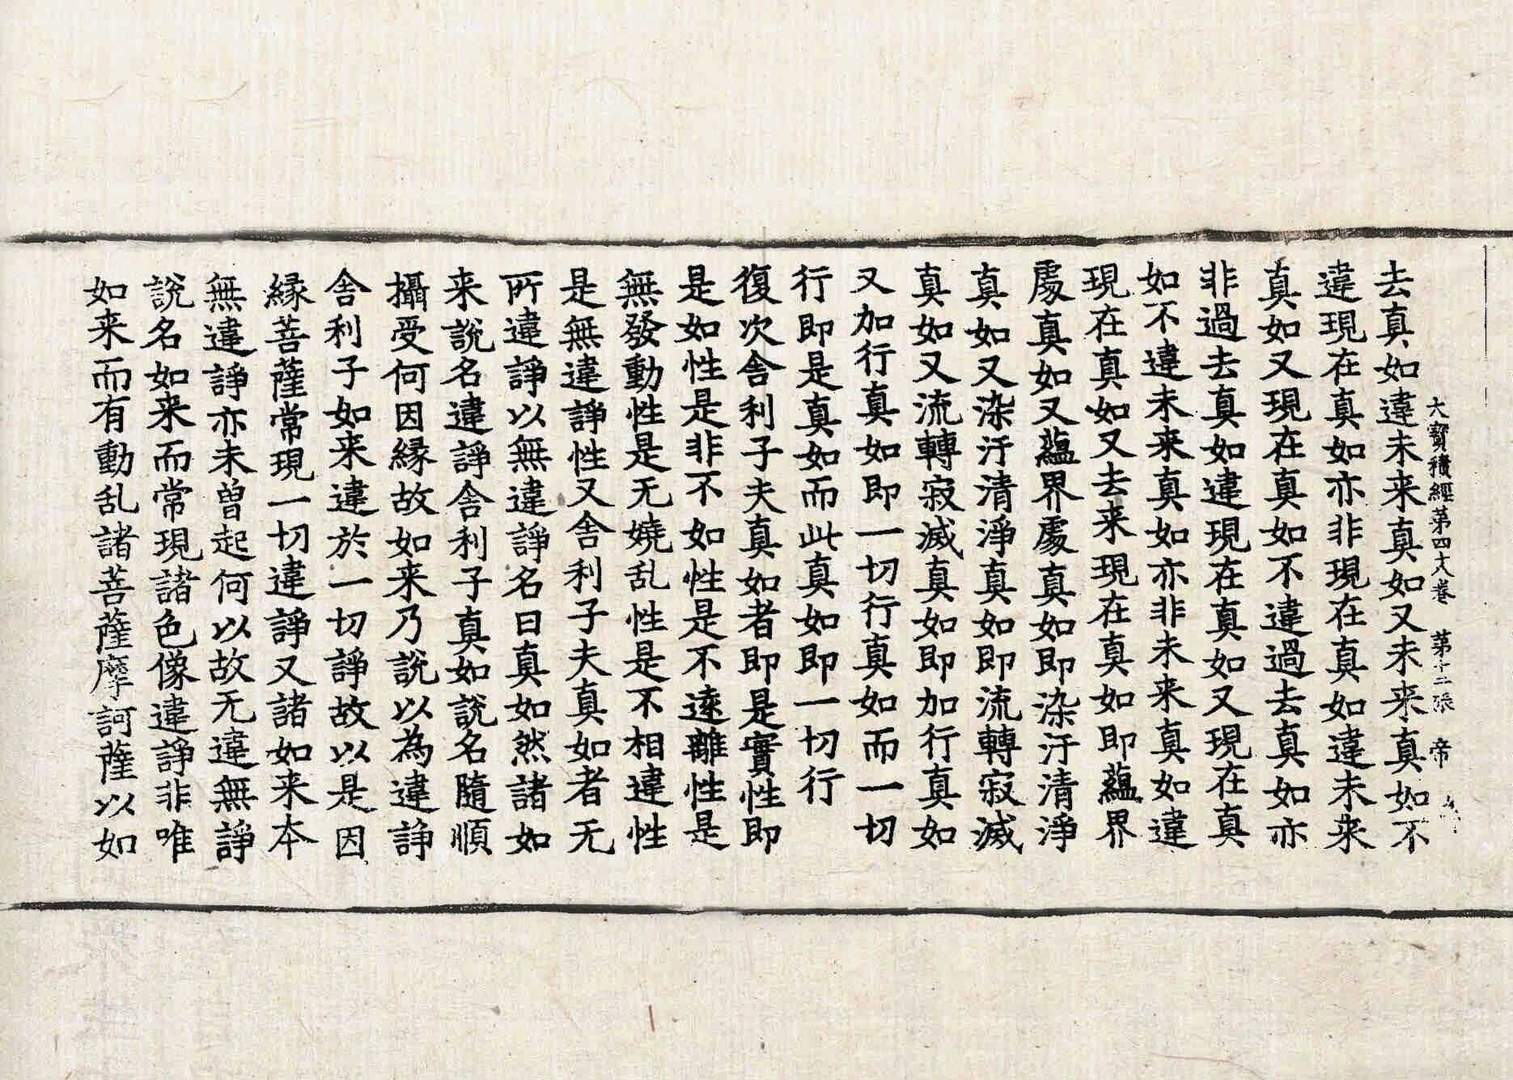 大寶積經第四 卷 第十二張 帝
去真如違未来真如又未来真如不
違現在真如亦非現在真如違未来
真如又現在真如不違過去真如亦
非過去真如違現在真如又現在真
如不違未来真如亦非未来真如違
現在真如又去来現在真如即蘊界
處真如又蘊界處真如即染汙清淨
真如又染汙清淨真如即流轉寂滅
真如又流轉寂滅真如即加行真如
又加行真如即一切行真如而一切
行即是真如而此真如即一切行
復次舍利子夫真如者即是實性即
是如性是非不如性是不遠離性是
無發動性是无嬈乱性是不相違性
是無違諍性又舍利子夫真如者无
所違諍以無違諍名曰真如然諸如
来說名違諍舍利子真如說名隨順
攝受何因縁故如来乃說以為違諍
舍利子如来違於一切諍故以是因
縁菩薩常現一切違諍又諸如来本
無違諍亦未曾起何以故无違無諍
說名如来而常現諸色像違諍非唯
如来而有動乱諸菩薩摩訶薩以如